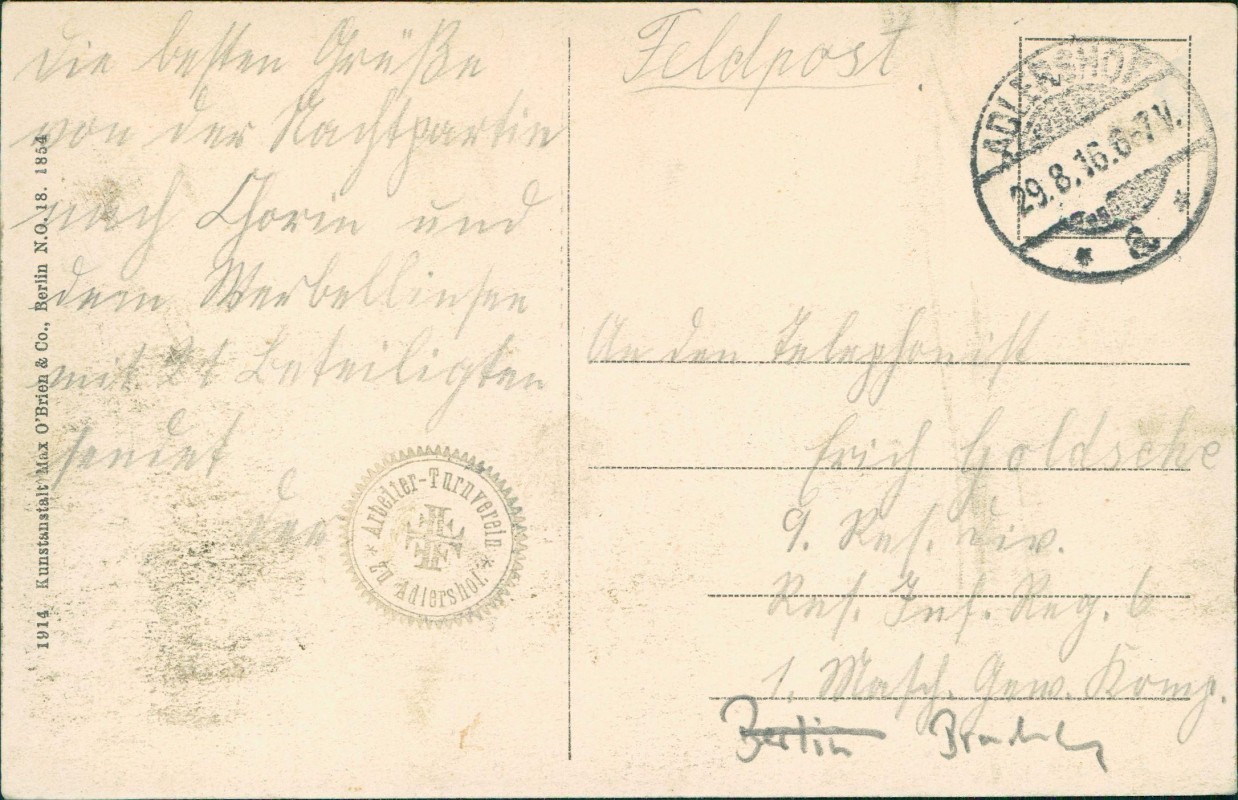 Die besten Grüße
von der Nachtpartie
nach Chorin und
dem Werbellinsee
mit 21 Beteiligten
sendet
der
* Arbeiter-Turnverein *
zu Adlershof.
FFFF
1914 Kunstanstalt Max O'Brien & Co., Berlin N.O. 18. 1854
Feldpost.
ADLERSHOF
29.8.16.6-7V.
* a *
An den Telephonist
Erich Goldsche
9. Res. Div.
Res. Inf. Reg. 6
1. Masch. Gew. Komp.
Berlin Brandenburg